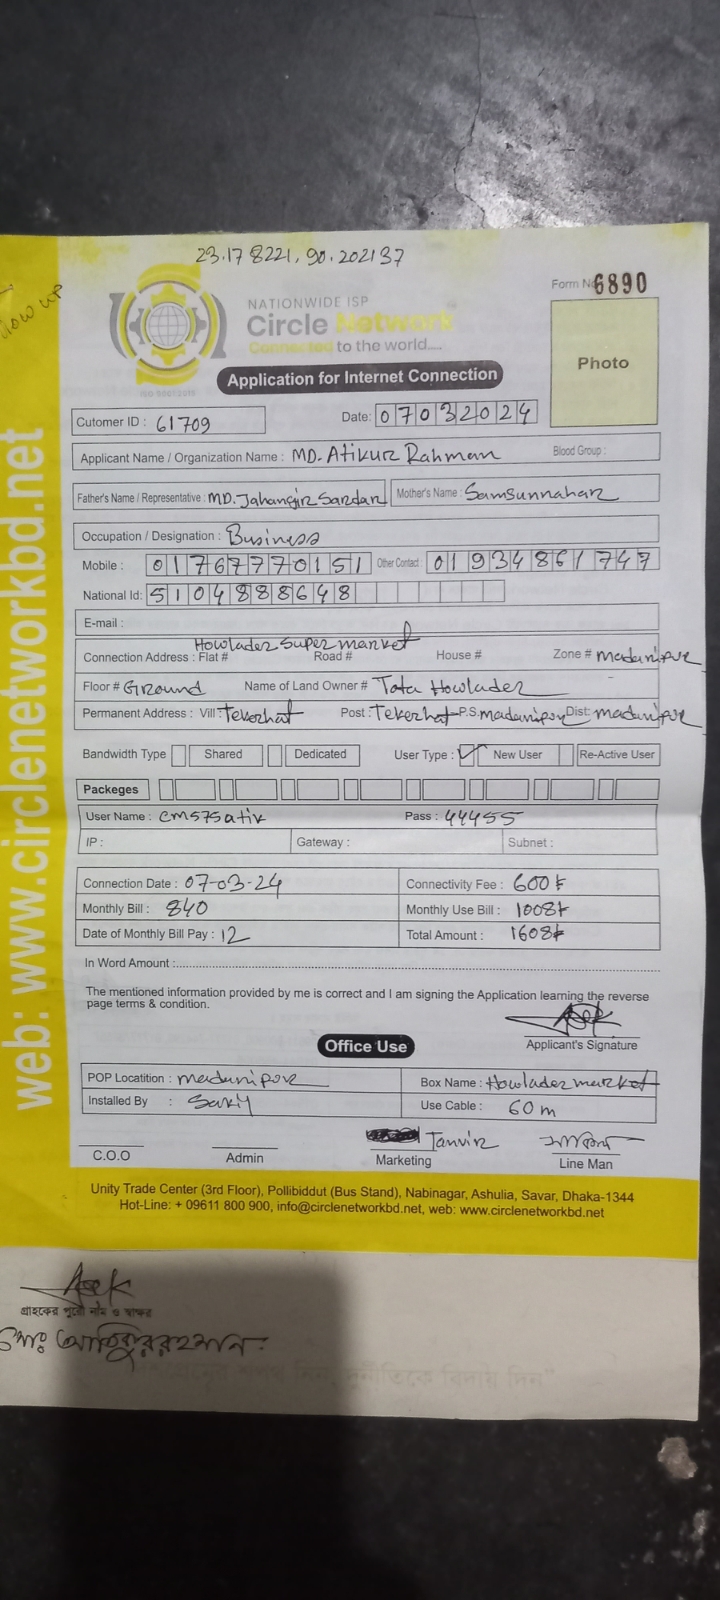 23.178221, 90.202137
Form No 6890
NATIONWIDE ISP
Circle Network
Connected to the world....
ISO 9001:2015
Photo
Application for Internet Connection
Cutomer ID : 61709 Date: 07032024
Applicant Name / Organization Name : MD. Atikur Rahman Blood Group :
Father's Name / Representative : MD. Jahangir Sardar Mother's Name : Samsunnahar
Occupation / Designation : Business
Mobile : 01767770151 Other Contact : 01934861747
National Id: 5104888648
E-mail :
Howlader Super market
Connection Address : Flat # Road # House # Zone # madaripur
Floor # Ground Name of Land Owner # Tota Howlader
Permanent Address : Vill: Tekerhat Post : Tekerhat P.S. madaripur Dist: madaripur
Bandwidth Type Shared Dedicated User Type : New User Re-Active User
Packeges
User Name : cms75atik Pass : 44455
IP : Gateway : Subnet :
Connection Date : 07-03-24 Connectivity Fee : 600৳
Monthly Bill : 840 Monthly Use Bill : 1008৳
Date of Monthly Bill Pay : 12 Total Amount : 1608৳
In Word Amount :
The mentioned information provided by me is correct and I am signing the Application learning the reverse
page terms & condition.
Applicant's Signature
Office Use
POP Locatition : madaripur Box Name : Howlader market
Installed By : Sakiy Use Cable : 60 m
Tanvir
C.O.O Admin Marketing Line Man
Unity Trade Center (3rd Floor), Pollibiddut (Bus Stand), Nabinagar, Ashulia, Savar, Dhaka-1344
Hot-Line: + 09611 800 900, info@circlenetworkbd.net, web: www.circlenetworkbd.net
web: www.circlenetworkbd.net
গ্রাহকের পুরো নাম ও স্বাক্ষর
মোঃ আতিকুর রহমান
দুর্নীতিকে বিদায় দিন"